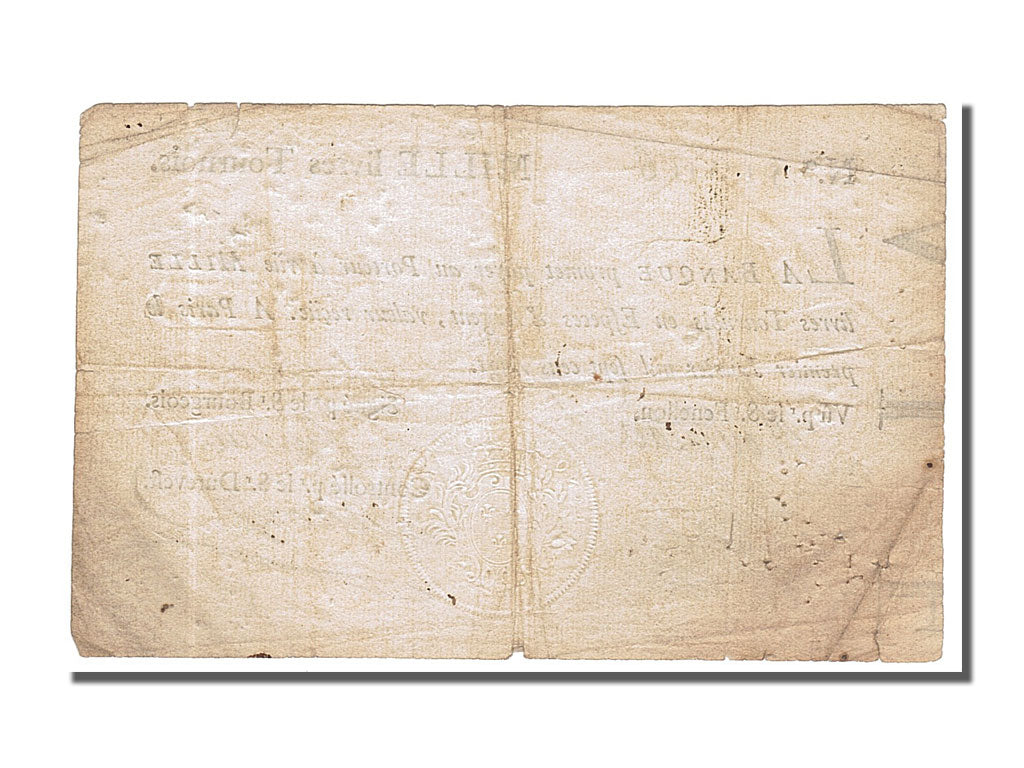 N.º MILLE livres Tournois.
LA BANQUE promet payer au Porteur à vûë MILLE
livres Tournois en Especes d'Argent, valeur reçûë. A Paris le
premier mil sept cens
Vû p.r le S.r Fenellon. Signé p.r le S.r Bourgeois.
Controllé p.r le S.r Durevest.